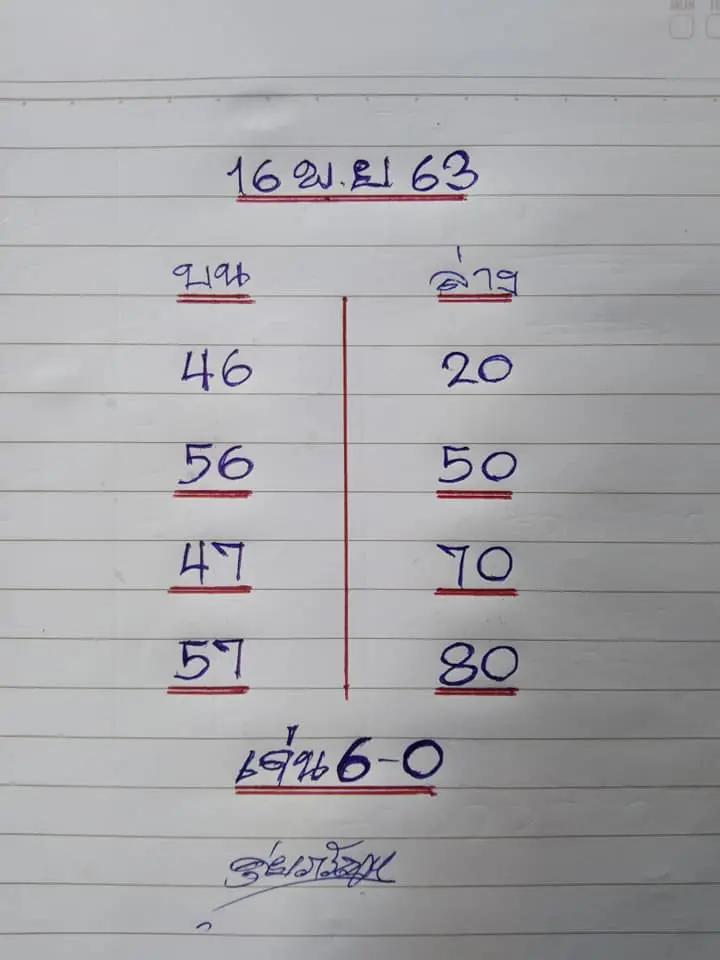 16 พ.ย 63
บน ล่าง
46 20
56 50
47 70
57 80
เด่น 6-0